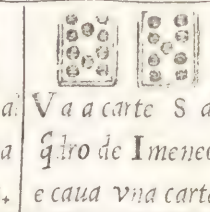 a Va a carte S a
a q̃dro de Imeneo
. e caua vna carta